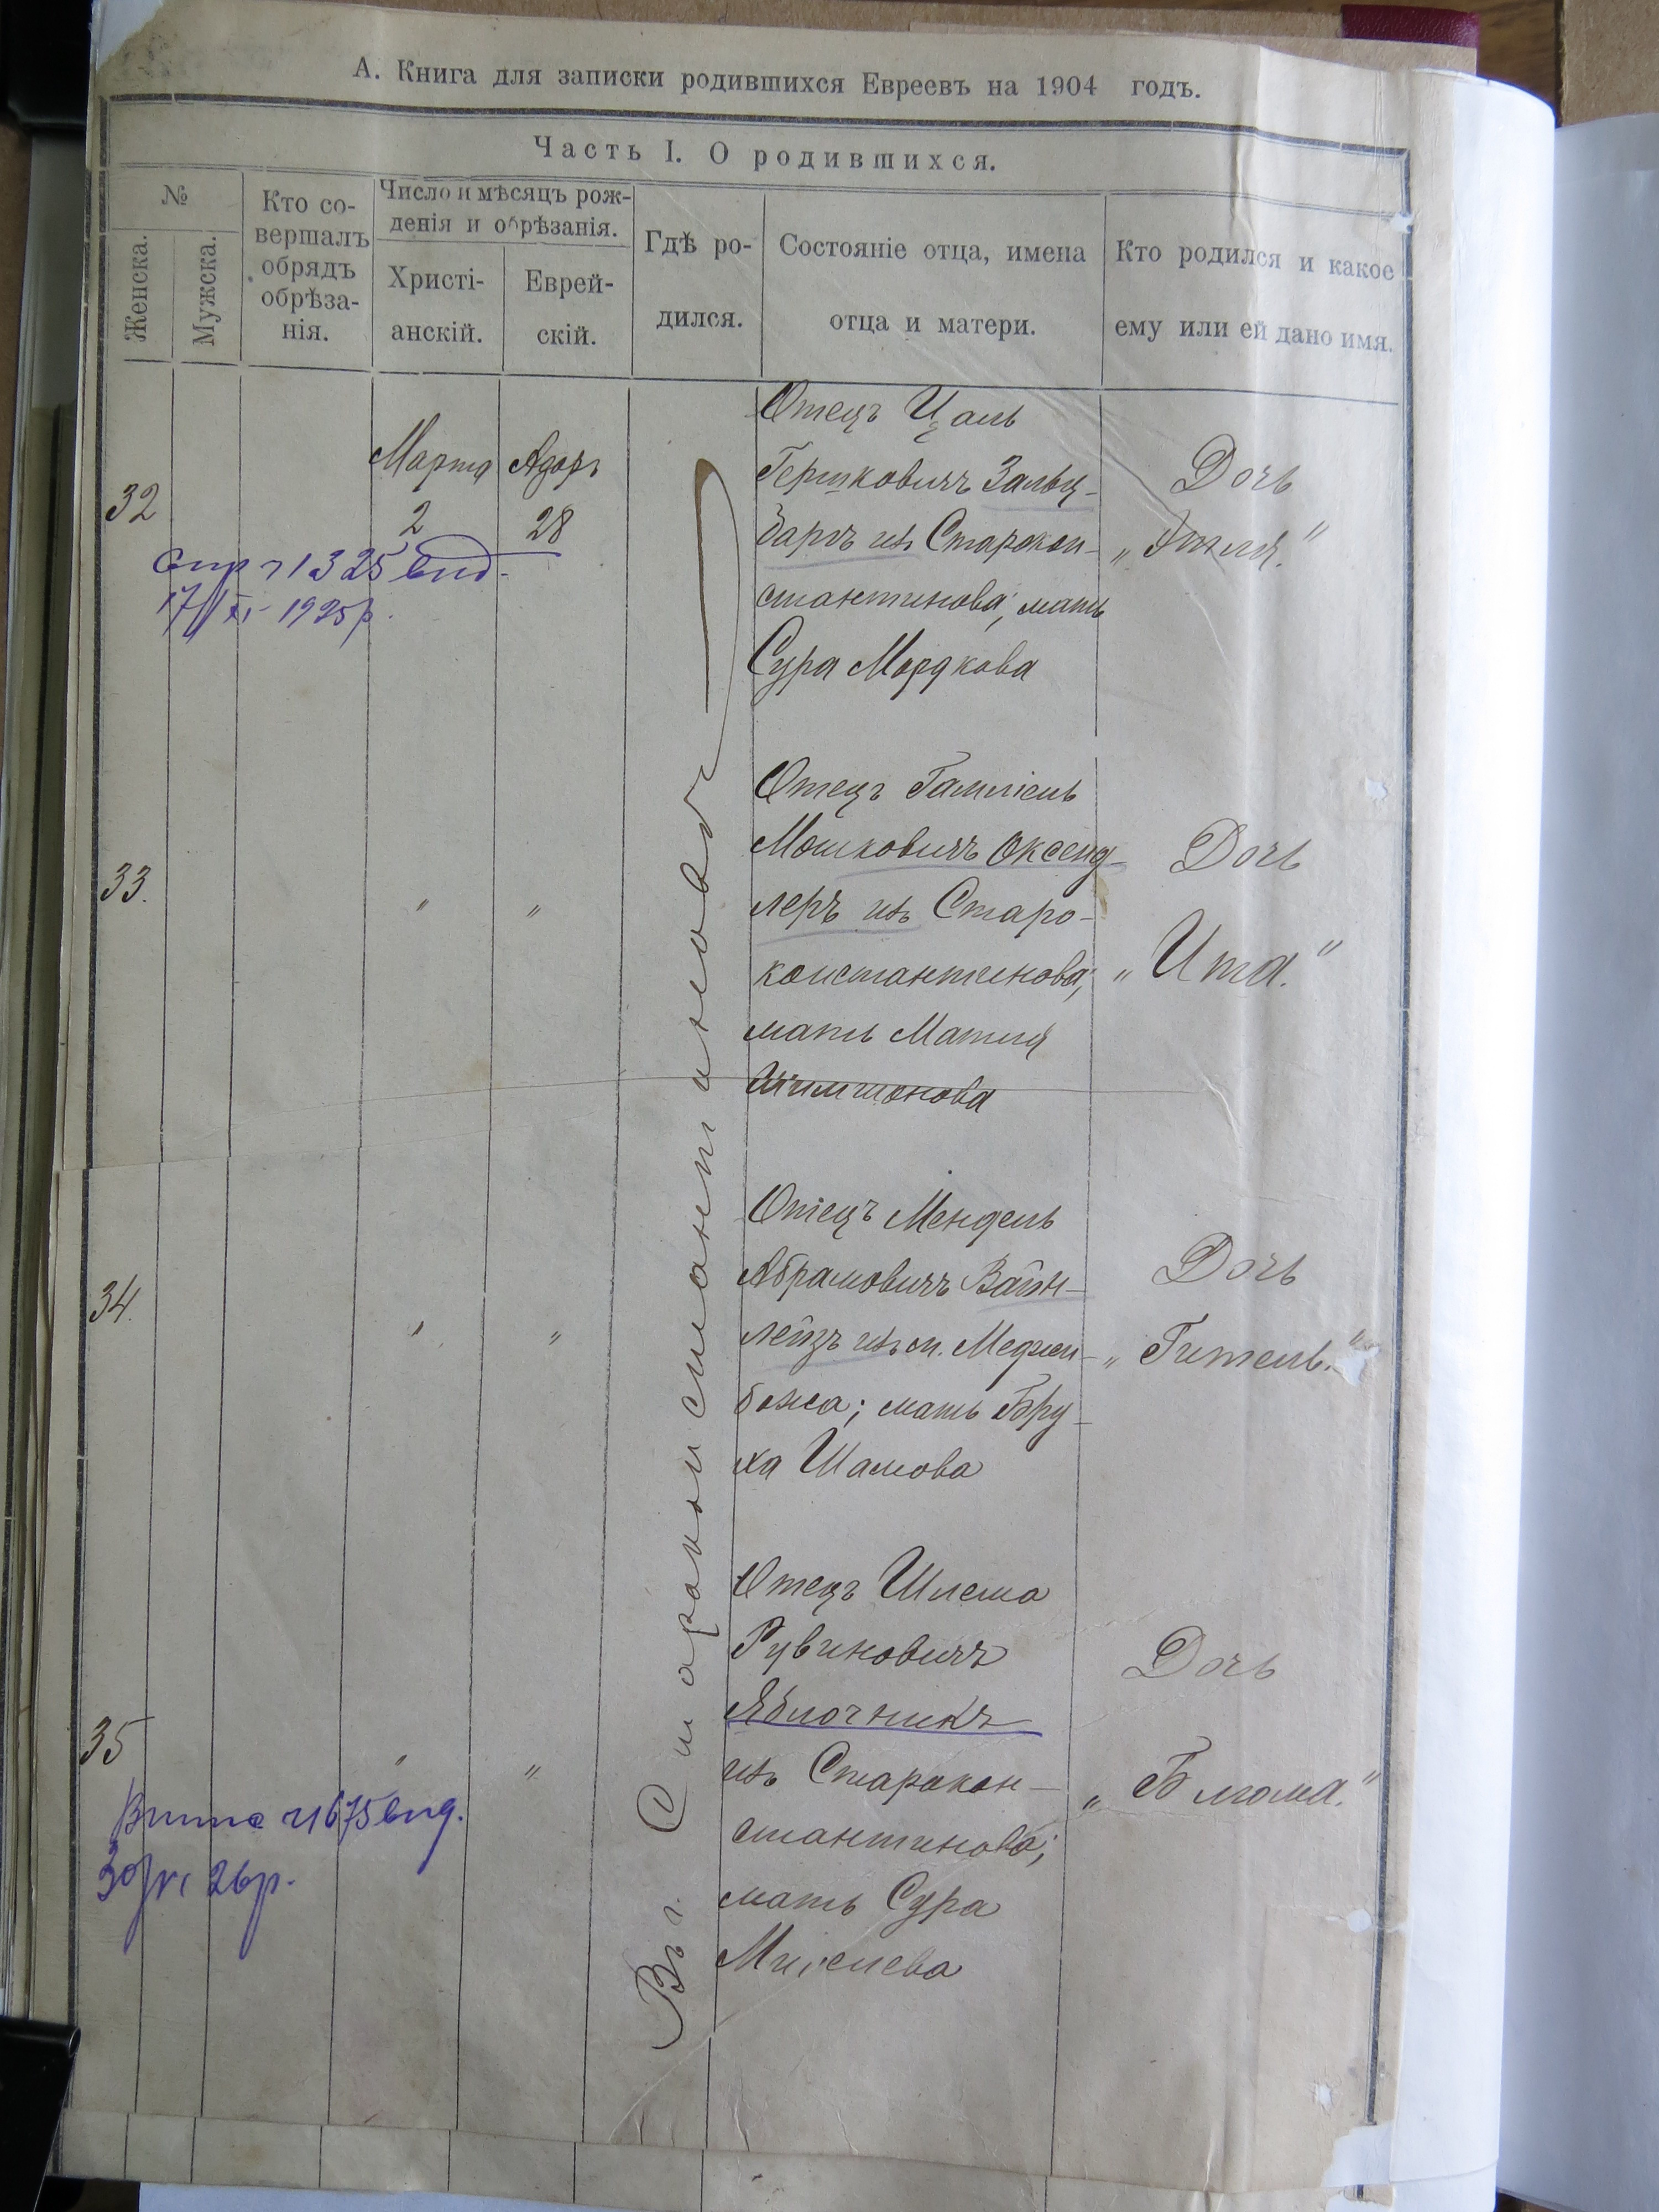 А. Книга для записки родившихся Евреевъ на 1904 годъ.
Часть I. О родившихся.
№
Женска.
Мужска.
Кто со-
вершалъ
обрядъ
обрѣза-
нія.
Число и мѣсяцъ рож-
денія и обрѣзанія.
Христі-
анскій.
Еврей-
скій.
Гдѣ ро-
дился.
Состояніе отца, имена
отца и матери.
Кто родился и какое
ему или ей дано имя.
32
Марта
2
Адаръ
28
1325 вид.
17/XI - 1925 р.
Въ г. Староконстантиновѣ
Отецъ Цаль
Гершковичъ Зальц-
баргъ изъ Старокон-
стантинова; мать
Сура Мордкова
Дочь
„Этля."
33.
" "
Отецъ Гамліель
Мошковичъ Оксенд-
леръ изъ Старо-
константинова;
мать Матля
Шимшонова
Дочь
„Ита."
34.
" "
Отецъ Мендель
Абрамовичъ Вайн-
лейзъ изъ м. Меджи-
божа; мать Бру-
ха Шамова
Дочь
„Гитель."
35
" "
675 вид.
30/VI 26 р.
Отецъ Шлема
Рувиновичъ
Яблочникъ
изъ Старокон-
стантинова;
мать Сура
Дочь
„Блюма."